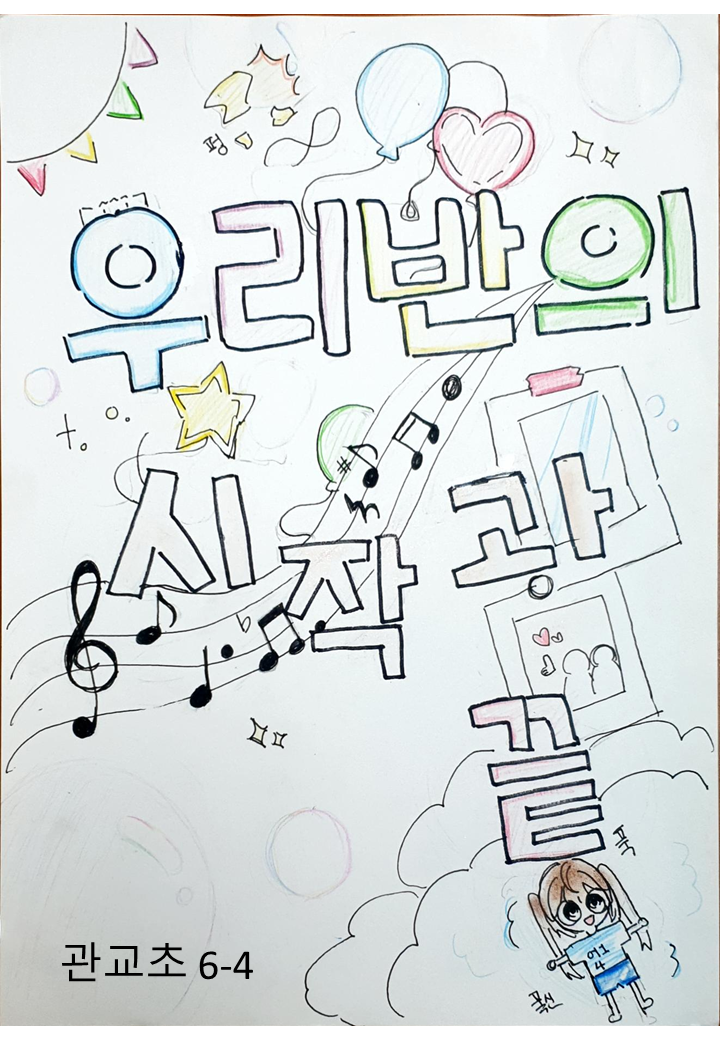 펑
우리반의
시작과
끝
푹
관교초 6-4
폭신